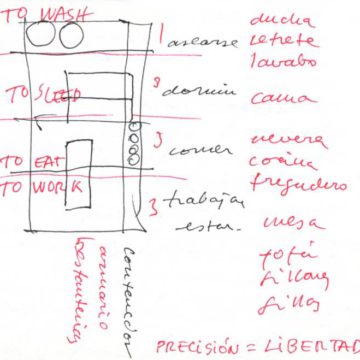 TO WASH
1 asearse
ducha
retrete
lavabo
TO SLEEP
dormir
cama
TO EAT
3 comer
nevera
cocina
fregadero
TO WORK
3 trabajar
estar.
mesa
sofá
sillones
sillas
contenedor
armario
estanterias
PRECISIÓN = LIBERTAD